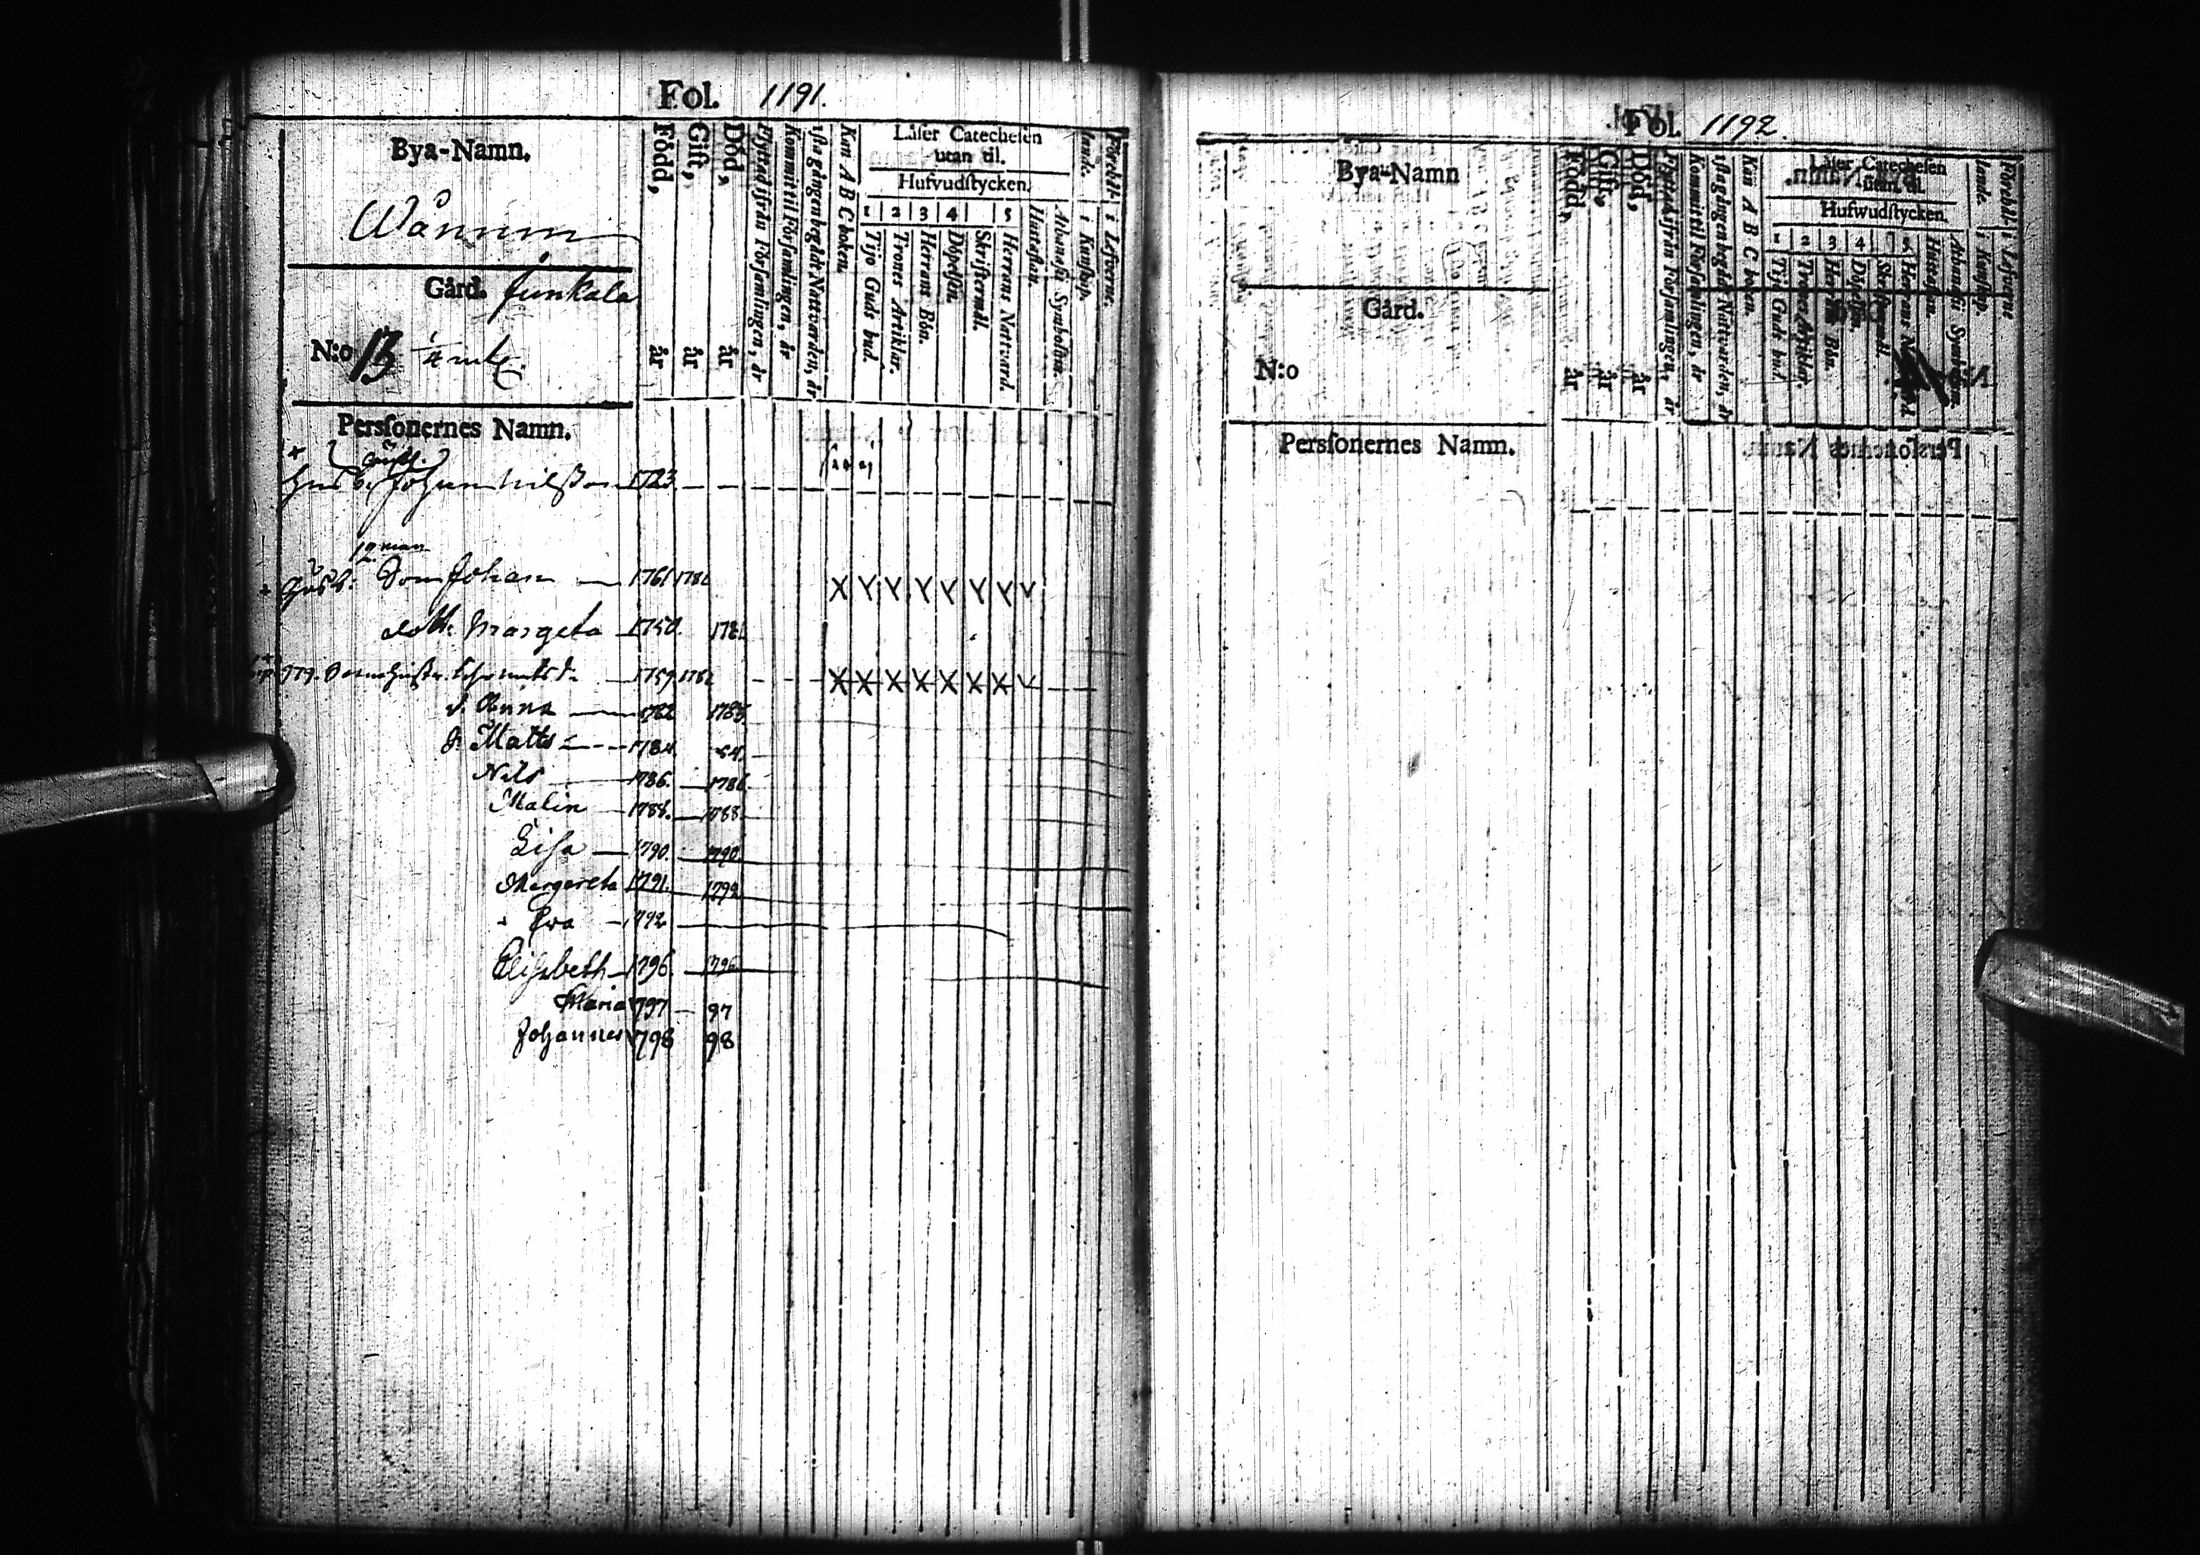 Fol. 1191.
Bya-Namn.
Wånum
Gård. Junkala
N:o 13 1/4 mtl.
Född, år
Gift, år
Död, år
Flyttad ifrån Församlingen, år
Kommit til Församlingen, år
1sta gången begådt Nattvarden, år
Kan A B C boken.
Läser Catechesen
utan til.
Hufvudstycken.
1 2 3 4 5
Tijo Guds bud.
Trones Artiklar.
Herrans Bön.
Döpelsen.
Skriftermål.
Herrans Nattvard.
Hustaflan.
Athanasii Symbolum.
Förhållande.
i Kunskap.
i Lefverne.
Persfonernes Namn.
Johan Nilsson 1723
12 man
Son Johan 1761 178
dott. Margeta 1750. 178
1759 178
d. Anna 1782 1783.
S. Matts 1784 84.
Nils 1786. 1786.
Malin 1788. 1788.
Lisa 1790. 1790
Margareta 1791. 1792
Eva 1792
Elisabeth 1796. 1796
Maria 1797 97
Johannes 1798 98
Fol. 1192.
Bya-Namn
Gård.
N:o
Född, år
Gift, år
Död, år
Flyttad ifrån Församlingen, år
Kommit til Församlingen, år
1sta gången begådt Nattvarden, år
Kan A B C boken.
Läser Catechesen
utan til.
Hufwudstycken.
1 2 3 4 5
Tijo Guds bud.
Trones Artiklar.
Hustaflan.
Athanasii Symbolum.
Förhållande.
i Kunskap.
i Lefverne
Persfonernes Namn.